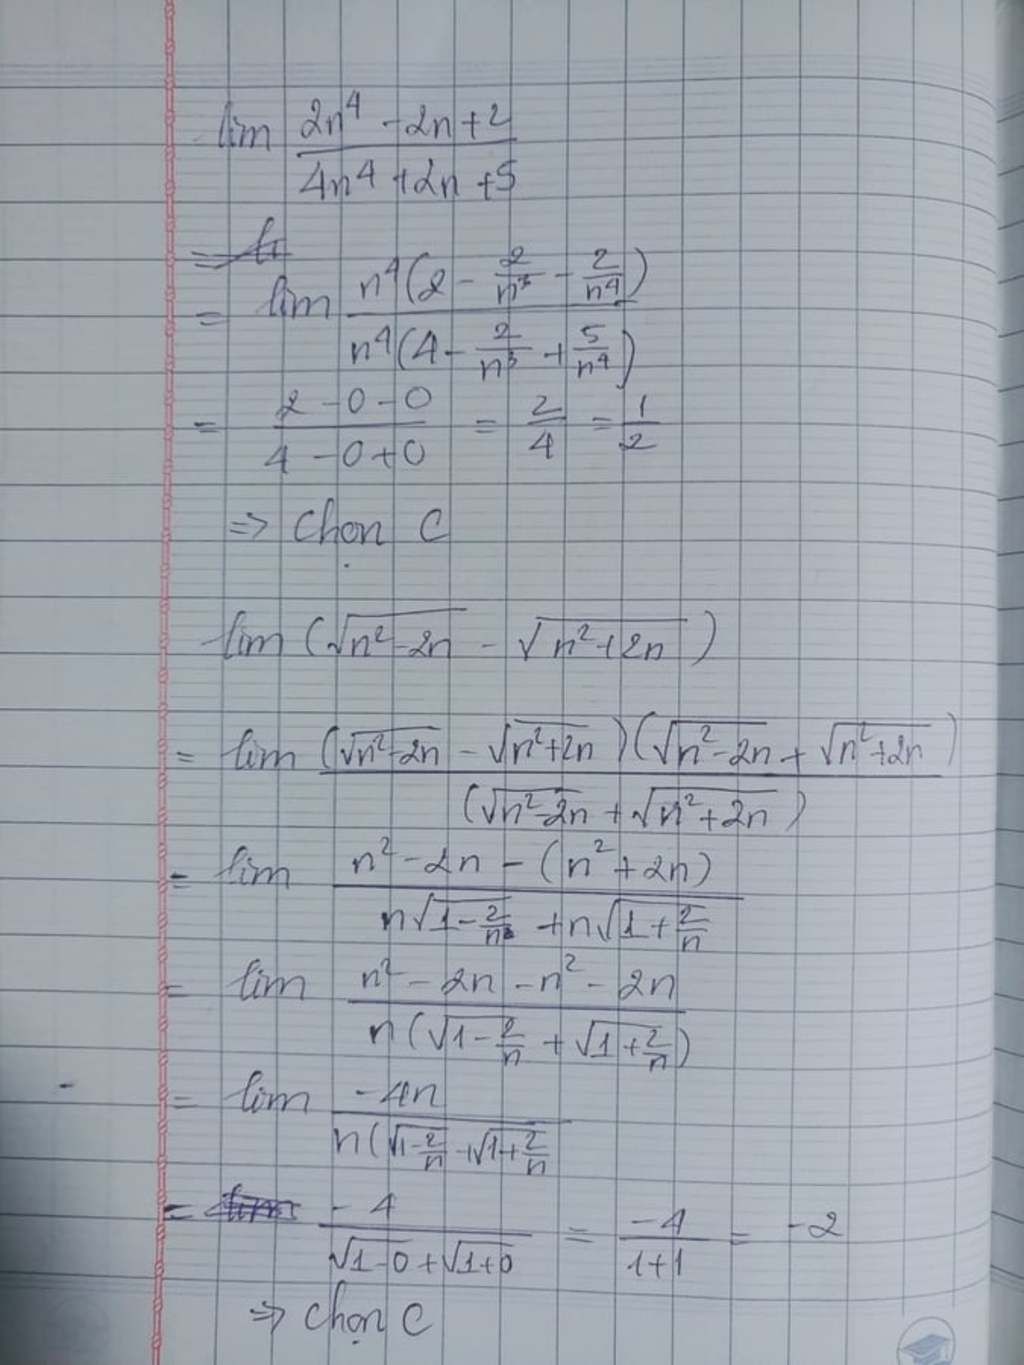 lim (2n⁴ - 2n + 2)/(4n⁴ + 2n + 5)
= lim (n⁴(2 - 2/n³ - 2/n⁴))/(n⁴(4 - 2/n³ + 5/n⁴))
= (2 - 0 - 0)/(4 - 0 + 0) = 2/4 = 1/2
=> Chọn C
lim (√(n² - 2n) - √(n² + 2n))
= lim ((√(n² - 2n) - √(n² + 2n))(√(n² - 2n) + √(n² + 2n)))/((√(n² - 2n) + √(n² + 2n)))
= lim (n² - 2n - (n² + 2n))/(n√(1 - 2/n) + n√(1 + 2/n))
= lim (n² - 2n - n² - 2n)/(n(√(1 - 2/n) + √(1 + 2/n)))
= lim (-4n)/(n(√(1 - 2/n) + √(1 + 2/n))
= (-4)/(√(1-0) + √(1+0)) = (-4)/(1+1) = -2
=> Chọn C